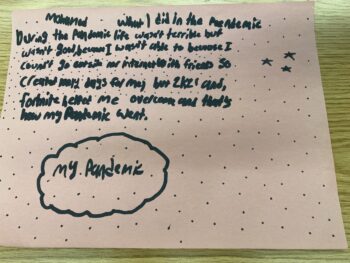 Mohamed What I did in the Pandemic
During the Pandemic life wasn't terrible but
wasn't good because I wasn't able to because I
couldn't go outside nor interact with friends so
Created many days for my but 2k21 and,
fortnite helped me overcome and that's
how my Pandemic went.
my Pandemic